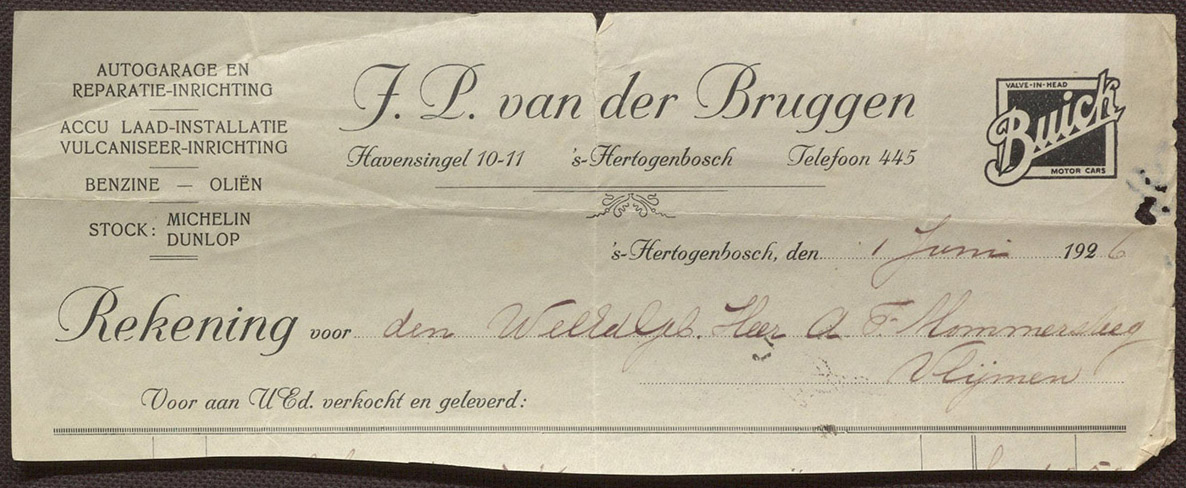 AUTOGARAGE EN
REPARATIE-INRICHTING
ACCU LAAD-INSTALLATIE
VULCANISEER-INRICHTING
BENZINE — OLIËN
STOCK: MICHELIN
DUNLOP
J. P. van der Bruggen
Havensingel 10-11 's-Hertogenbosch Telefoon 445
VALVE-IN-HEAD
Buick
MOTOR CARS
's-Hertogenbosch, den 1 Juni 1926
Rekening voor den WelEdGeb. Heer A F Mommersteeg
Vlijmen
Voor aan UEd. verkocht en geleverd: